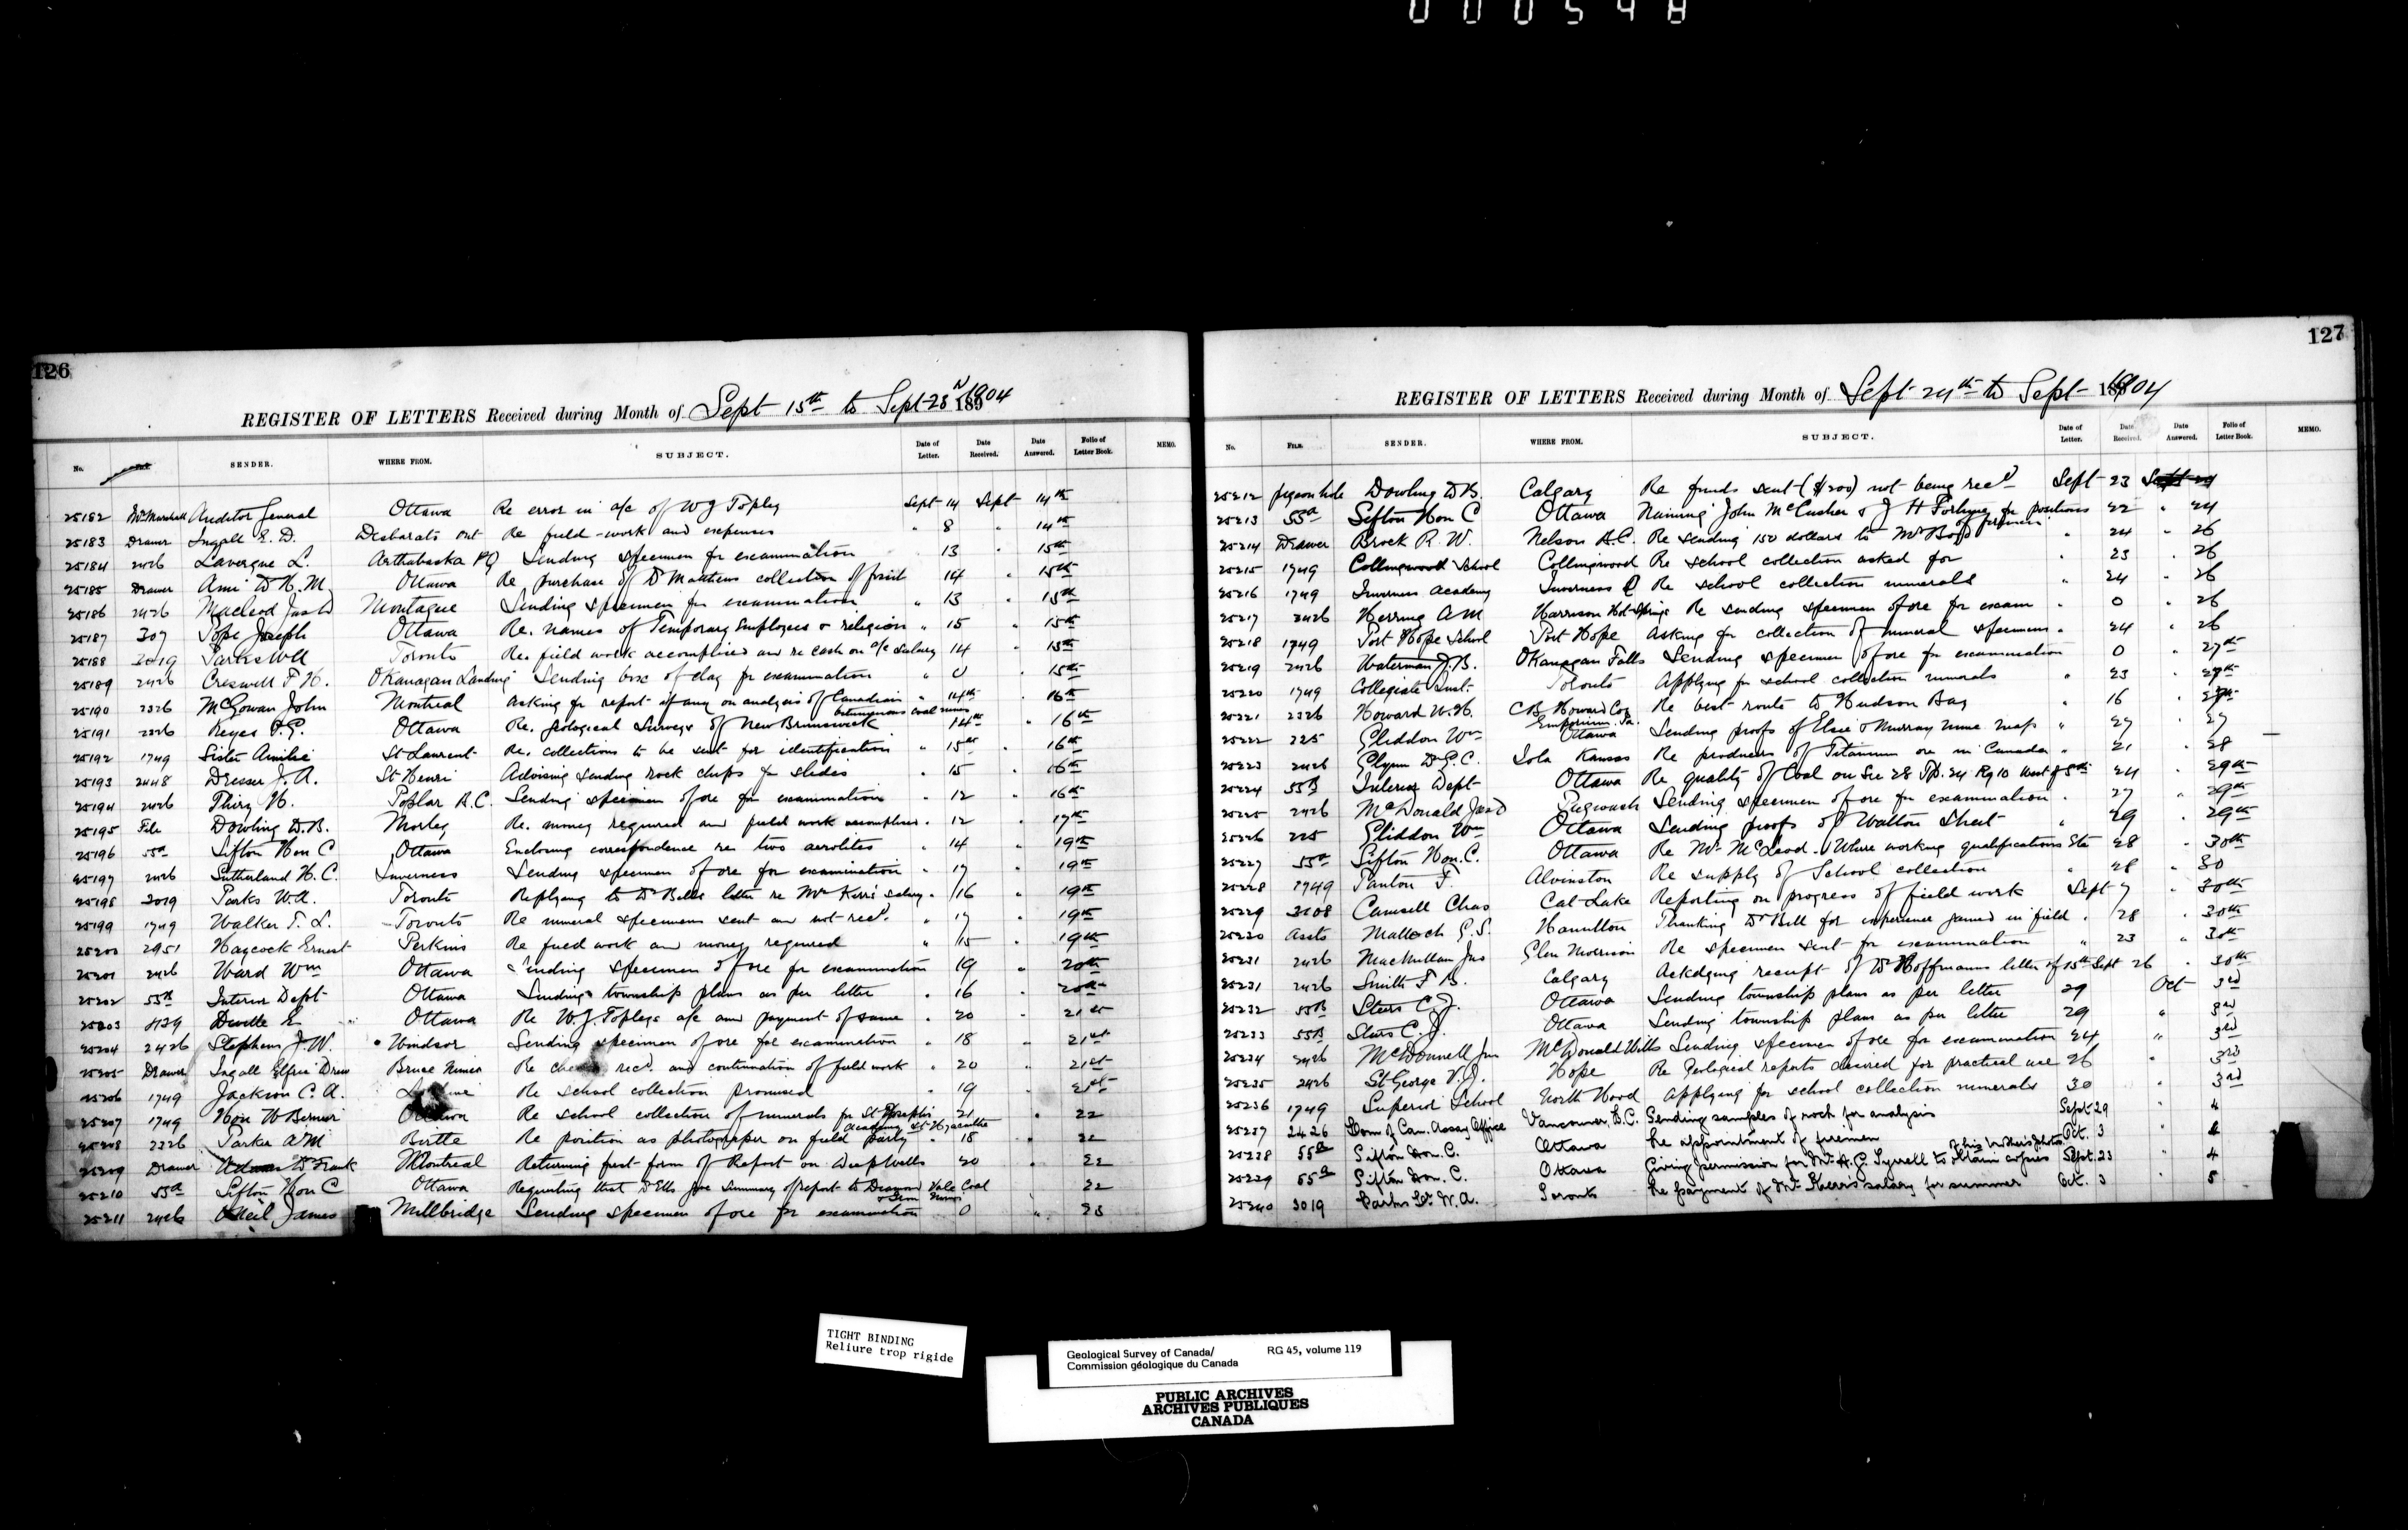 000548
126
REGISTER OF LETTERS Received during Month of Sept 15th to Sept 28 1904
No. SENDER. WHERE FROM. SUBJECT. Date of Letter. Date Received. Date Answered. Folio of Letter Book. MEMO.
25182 Auditor General Ottawa Re error in a/c of W J Topley Sept 14 Sept 14th
25183 Drawer Ingall E. D. Desbarats Ont Re field-work and expenses " 8 " 14th
25184 2426 Lavergne L. Arthabaska PQ Sending specimen for examination 13 " 15th
25185 Drawer Ami Dr H. M. Ottawa Re purchase of Dr Matthews collection of 14 " 15th
25186 2426 Macleod Montague Sending specimen for examination " 13 " 15th
25187 307 Pope Joseph Ottawa Re. names of Temporary Employees & religion " 15 " 15th
25188 3019 Parks WA Toronto Re. field work accomplised and re cash on a/c salary 14 " 15th
25189 2426 Creswell F H. Okanagan Landing Sending box of clay for examination " 0 " 15th
25190 2326 McGowan John Montreal Asking for report if any on analysis of Canadian bituminous coal mines " 14th " 16th
25191 2326 Keyes P.G. Ottawa Re. Geological Surveys of New Brunswick 14th " 16th
25192 1749 Sister St Laurent Re. collections to be sent for identification " 15th " 16th
25193 2448 Dresser J. A. St Henri Advising sending rock chips for slides " 15 " 16th
25194 2426 Thiry H. Poplar B.C. Sending specimen of ore for examination " 12 " 16th
25195 File Dowling D.B. Morley Re. money required and field work accomplised " 12 " 17th
25196 55a Sifton Hon C Ottawa Enclosing correspondence re two aerolites " 14 " 19th
25197 2426 Sutherland H. C. Inverness Sending specimen of ore for examination " 17 " 19th
25198 3019 Parks W.A. Toronto Replying to Dr Bells letter re Mr Kerrs salary " 16 " 19th
25199 1749 Walker T. L. Toronto Re mineral specimens sent and not recd. " 17 " 19th
25200 2951 Haycock Ernest Perkins Re field work and money required " 15 " 19th
25201 2426 Ward Wm Ottawa Sending specimen of ore for examination 19 " 20th
25202 55B Interior Dept Ottawa Sending township plans as per letter " 16 20th
25203 429 Deville E Ottawa Re W. J. Topleys a/c and payment of same " 20 " 21st
25204 2426 Stephens J. W. Windsor Sending specimen of ore for examination " 18 " 21st
25205 Drawer Ingall Elfric Drew Bruce Mines Re recd. and continuation of field work " 20 " 21st
25206 1749 Jackson C. A. Re school collection promised " 19 " 21st
25207 1749 Hon W Bernier Ottawa Re school collection of minerals for St Josephs Academy St Hyacinthe 21 " 22
25208 2326 Parker A M Birtle Re position as photographer on field party " 18 " 22
25209 Drawer Adams Dr Frank Montreal Returning first form of Report on Deep Wells " 20 " 22
25210 55a Sifton Hon C Ottawa Requesting that Dr Ells give summary of report to Coal 22
25211 2426 O'Neil James Millbridge Sending specimen of ore for examination 0 " 23
127
REGISTER OF LETTERS Received during Month of Sept 24th to Sept 1904
No. FILE. SENDER. WHERE FROM. SUBJECT. Date of Letter. Date Received. Date Answered. Folio of Letter Book. MEMO.
25212 pigeon hole Dowling D B. Calgary Re funds sent ($200) not being recd Sept 23 Sept 24
25213 55a Sifton Hon C Ottawa Naming John McCusker & J H for positions of firemen 22 " 24
25214 Drawer Brock R. W. Nelson B.C. Re sending 150 dollars to Mr Boyd " 24 " 26
25215 1749 Collingwood School Collingwood Re school collection asked for " 23 " 26
25216 1749 Inverness Academy Inverness Re school collection minerals " 24 " 26
25217 2426 Herring A M Harrison Hot Springs Re sending specimen of ore for exam " 0 " 26
25218 1749 Port Hope School Port Hope Asking for collection of mineral specimens " 24 " 26
25219 2426 Waterman J. B. Okanagan Falls Sending specimen of ore for examination 0 " 27th
25220 1749 Collegiate Inst. Toronto Applying for school collection minerals " 23 " 27th
25221 2326 Howard W. H. C B Howard Co Emporium. Pa. Re best route to Hudson Bay " 16 " 27th
25222 225 Gliddon Wm Ottawa Sending proofs of Elsie & Murray mine map " 27 " 27
25223 2426 Glynn Dr G. C. Iola Kansas Re producers of Titanium ore in Canada " 21 " 28
25224 55B Interior Dept Ottawa Re quality of Coal on Sec 28 Tp. 24 Rg 10 West of 5th 24 " 29th
25225 2426 McDonald Pugwash Sending specimen of ore for examination " 27 " 29th
25226 225 Gliddon Wm Ottawa Sending proofs of Walton Sheet " 29 " 29th
25227 55a Sifton Hon. C. Ottawa Re Mr McLeod. Where working qualifications Etc 28 " 30th
25228 1749 Panton F. Alvinston Re supply of School collection " 28 " 30
25229 3108 Camsell Chas Cat Lake Reporting on progress of field work Sept 7 " 30th
25230 Assts Malloch G. S. Hamilton Thanking Dr Bell for experience gained in field " 28 " 30th
25231 2426 MacMillan Jas Glen Morrison Re specimen sent for examination " 23 " 30th
25231 2426 Smith F B. Calgary Ackdging receipt of Dr Hoffmanns letter of 15th Sept 26 " 30th
25232 55B Steers C. J. Ottawa Sending township plans as per letter 29 Oct 3rd
25233 55B Steers C. J. Ottawa Sending township plans as per letter 29 " 3rd
25234 2426 McDonnell Jno McDonald Mills Sending specimen of ore for examination 24 " 3rd
25235 2426 St George V. J. Hope Re Geological reports desired for practical use 26 " 3rd
25236 1749 Superior School North Hood Applying for school collection minerals 30 " 3rd
25237 2426 Dom of Can. Assay Office Vancouver, B.C. Sending samples of rock for analysis Sept. 29 " 4
25238 55a Sifton Hon. C. Ottawa Re appointment of firemen Oct. 3 " 4
25239 55a Sifton Hon. C. Ottawa Giving permission for Mr. H. G. Tyrrell to obtain copies of his brothers photos Sept. 23 " 4
25240 3019 Parks W. A. Toronto Re payment of Mr. Kerr's salary for summer Oct. 3 5
TIGHT BINDING
Reliure trop rigide
Geological Survey of Canada/ RG 45, volume 119
Commission géologique du Canada
PUBLIC ARCHIVES
ARCHIVES PUBLIQUES
CANADA